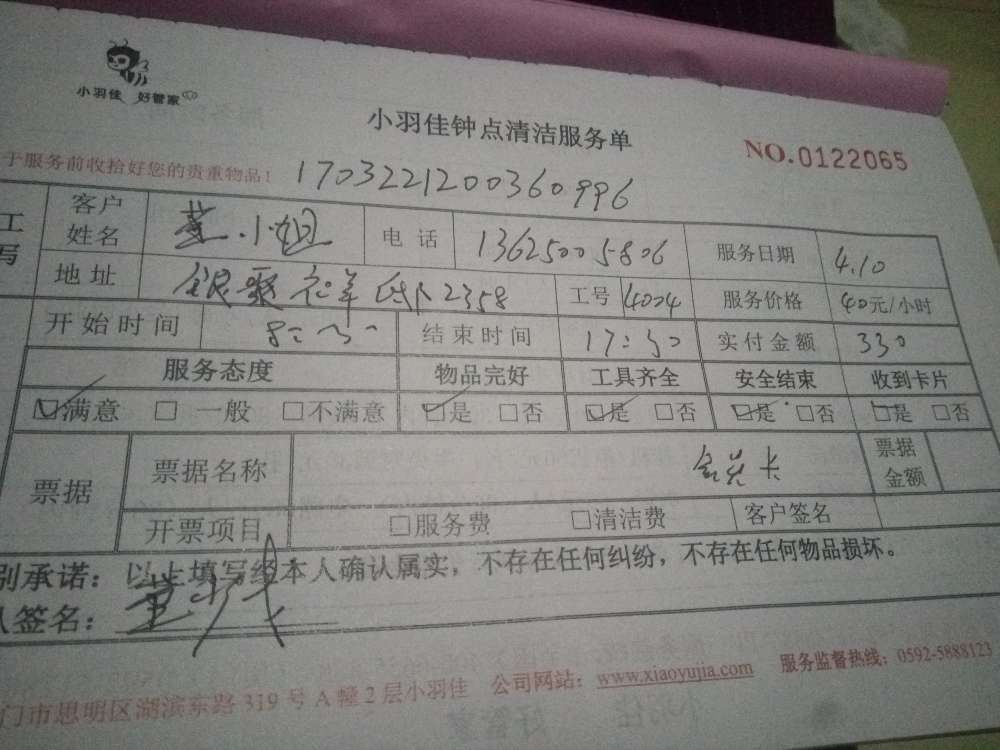 小羽佳 好管家
小羽佳钟点清洁服务单
NO.0122065
于服务前收拾好您的贵重物品！ 1703221200360996
工 写
客户姓名 董小姐 电话 13625005806 服务日期 4.10
地址 2358 工号 4004 服务价格 40元/小时
开始时间 结束时间 17:30 实付金额 330
服务态度 物品完好 工具齐全 安全结束 收到卡片
☑满意 □一般 □不满意 ☑是 □否 ☑是 □否 ☑是 □否 ☑是 □否
票据 票据名称 票据金额
开票项目 □服务费 □清洁费 客户签名
别承诺：以上填写经本人确认属实，不存在任何纠纷，不存在任何物品损坏。
人签名：
门市思明区湖滨东路 319 号 A 幢 2 层小羽佳 公司网站：www.xiaoyujia.com 服务监督热线：0592-5888123